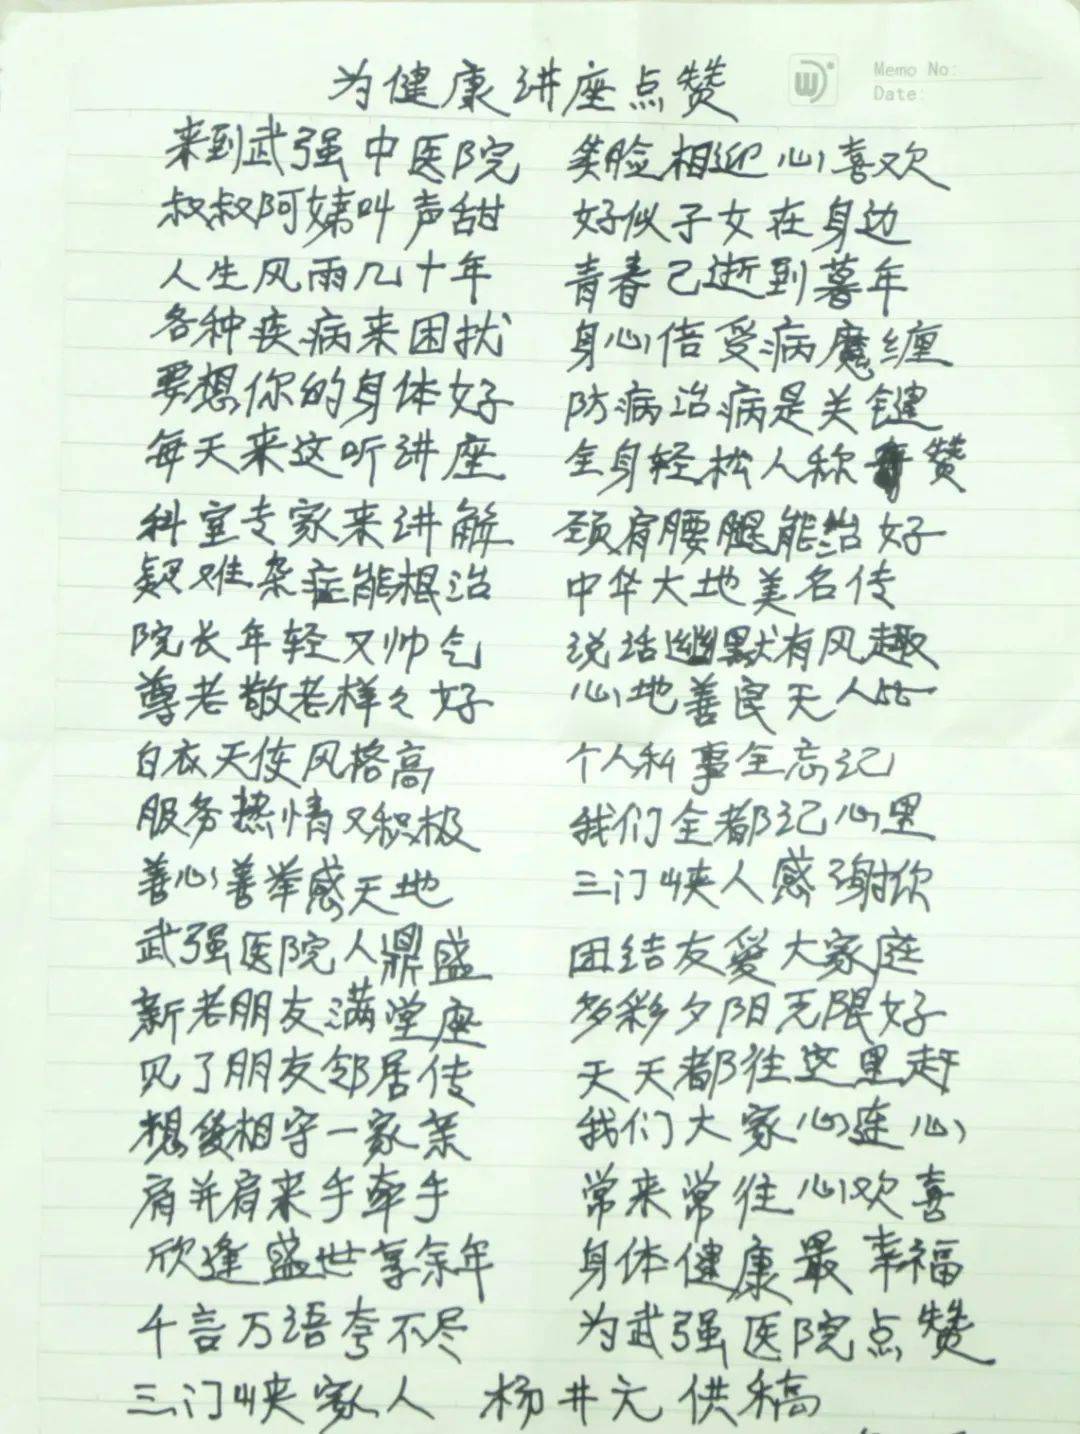 为健康讲座点赞
Memo No:
Date:
来到武强中医院 笑脸相迎心喜欢
叔叔阿姨叫声甜 好似子女在身边
人生风雨几十年 青春已逝到暮年
各种疾病来困扰 身心倍受病魔缠
要想你的身体好 防病治病是关键
每天来这听讲座 全身轻松人称赞
科室专家来讲解 颈肩腰腿能治好
疑难杂症能根治 中华大地美名传
院长年轻又帅气 说话幽默有风趣
尊老敬老样々好 心地善良无人比
白衣天使风格高 个人私事全忘记
服务热情又积极 我们全都记心里
善心善举感天地 三门峡人感谢你
武强医院人鼎盛 团结友爱大家庭
新老朋友满堂座 多彩夕阳无限好
见了朋友邻居传 天天都往这里赶
想爱相守一家亲 我们大家心连心
肩并肩来手牵手 常来常往心欢喜
欣逢盛世享余年 身体健康最幸福
千言万语夸不尽 为武强医院点赞
三门峡家人 杨井元供稿